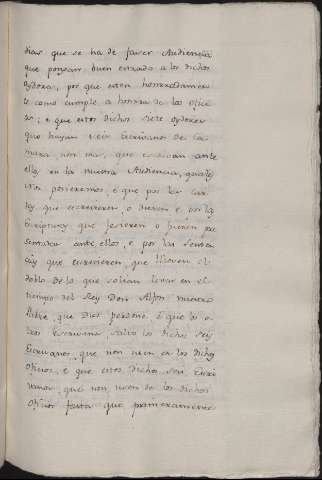 dias que se ha de facer Audiencia
que pongan buen estrado a los dichos
oydores, por que esten honrradamen
te como cumple a honrra de los ofici
os; e que estos dichos siete oydores
que hayan seis Escrivanos de Ca-
mara non mas, que escrivan ante
ellos en la nuestra Audiencia, quales
nos porneremos, e que por las car-
tas que escrivieren, o dieren e por las
Escripturas que ficieren o fueren pre
sentadas ante ellos, e por las senten
cias que escrivieren, que lleven el
doblo de lo que solian levar en el
tiempo del Rey Don Alfon nuestro
Padre, que Dios perdone. E que los o
tros Escrivanos, salvo los dichos seis
Escrivanos, que non usen en los dichos
Oficios, e que estos dichos seis Escri
vanos, que non usen de los dichos
Oficios fasta que primeramente